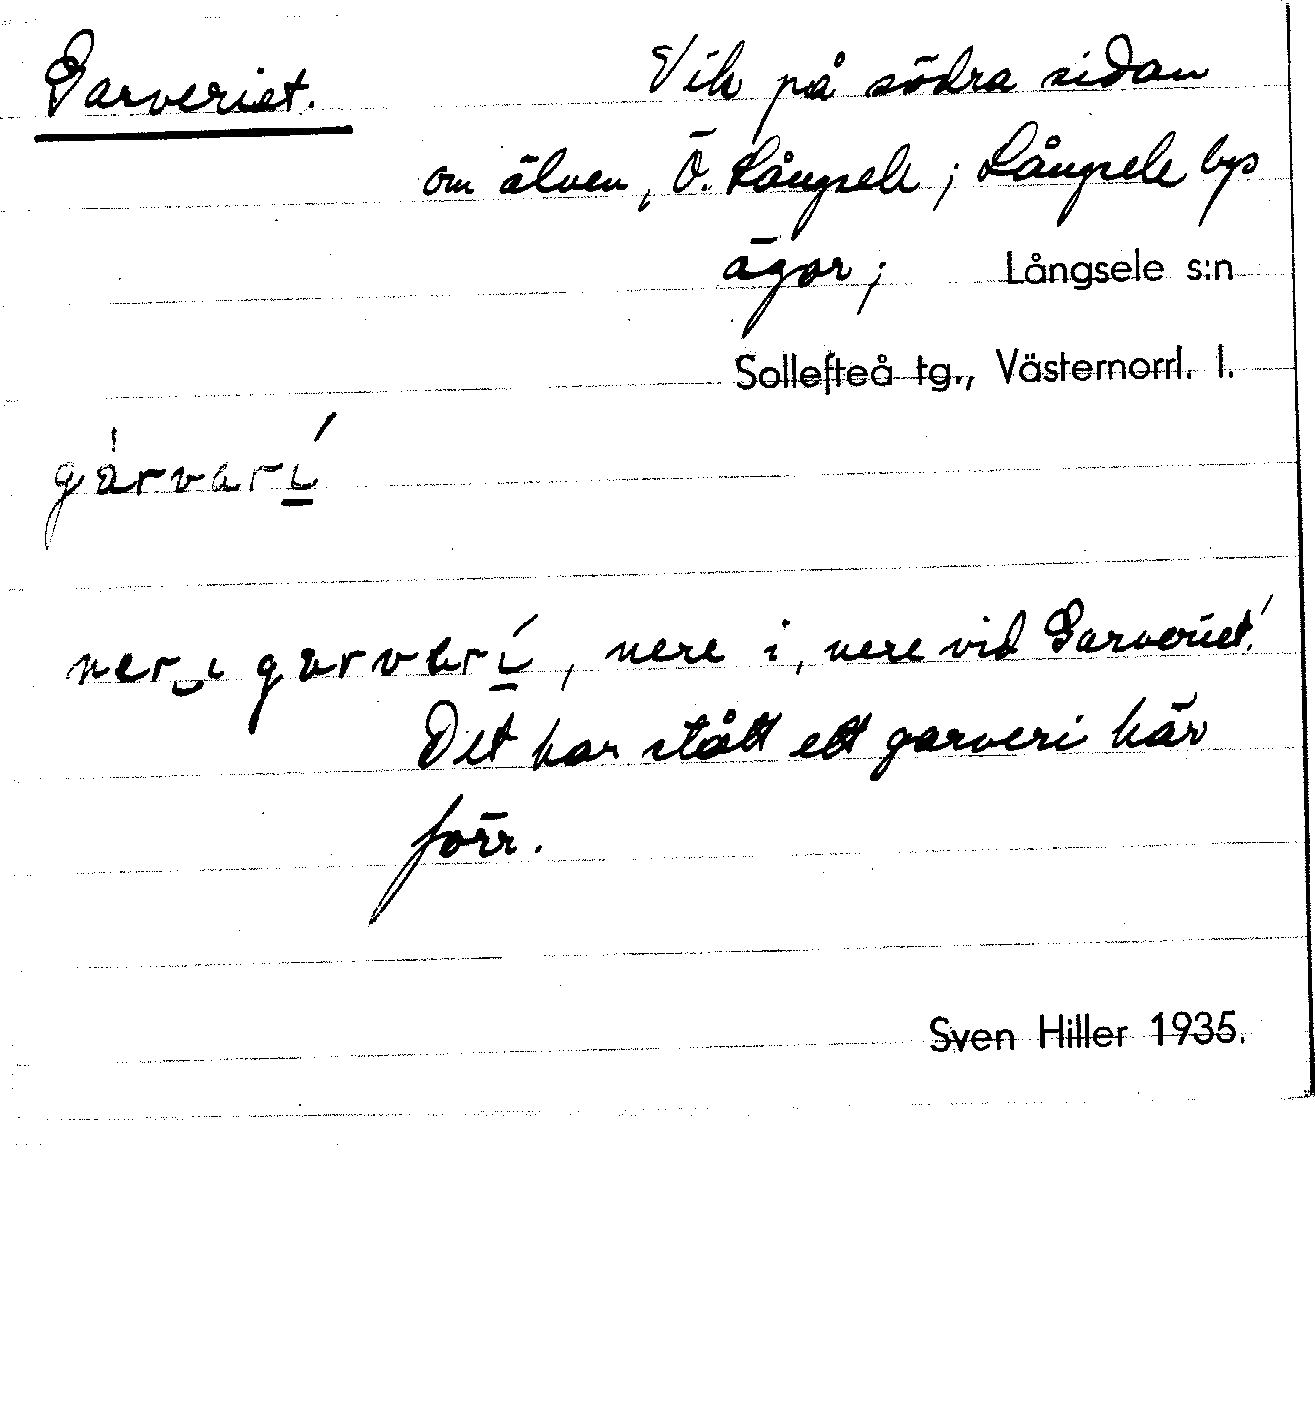 Garveriet. Vik på södra sidan
om älven, Ö. Långsele; Långsele bys
ägor; Långsele s:n
Sollefteå tg., Västernorrl. l.
gàrvarí
ner‿ɩ garvarí, nere i, nere vid Garveriet!
Det har stått ett garveri här
förr.
Sven Hiller 1935.